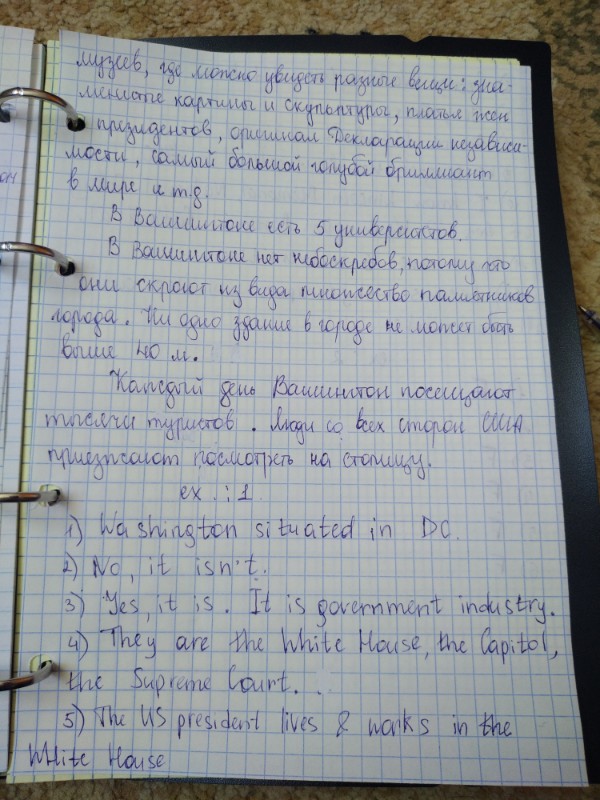 музеев, где можно увидеть разные вещи: зна-
менитые картины и скульптуры, платья жен
президентов, оригинал Декларации независи-
мости, самый большой голубой бриллиант
в мире и т.д.
В Вашингтоне есть 5 университетов.
В Вашингтоне нет небоскребов, потому что
они скроют из вида множество памятников
города. Ни одно здание в городе не может быть
выше 40 м.
Каждый день Вашингтон посещают
тысячи туристов. Люди со всех сторон США
приезжают посмотреть на столицу.
ex.: 1.
1) Washington situated in DC.
2) No, it isn't.
3) Yes, it is. It is government industry.
4) They are the White House, the Capitol,
the Supreme Court.
5) The US president lives & works in the
White House